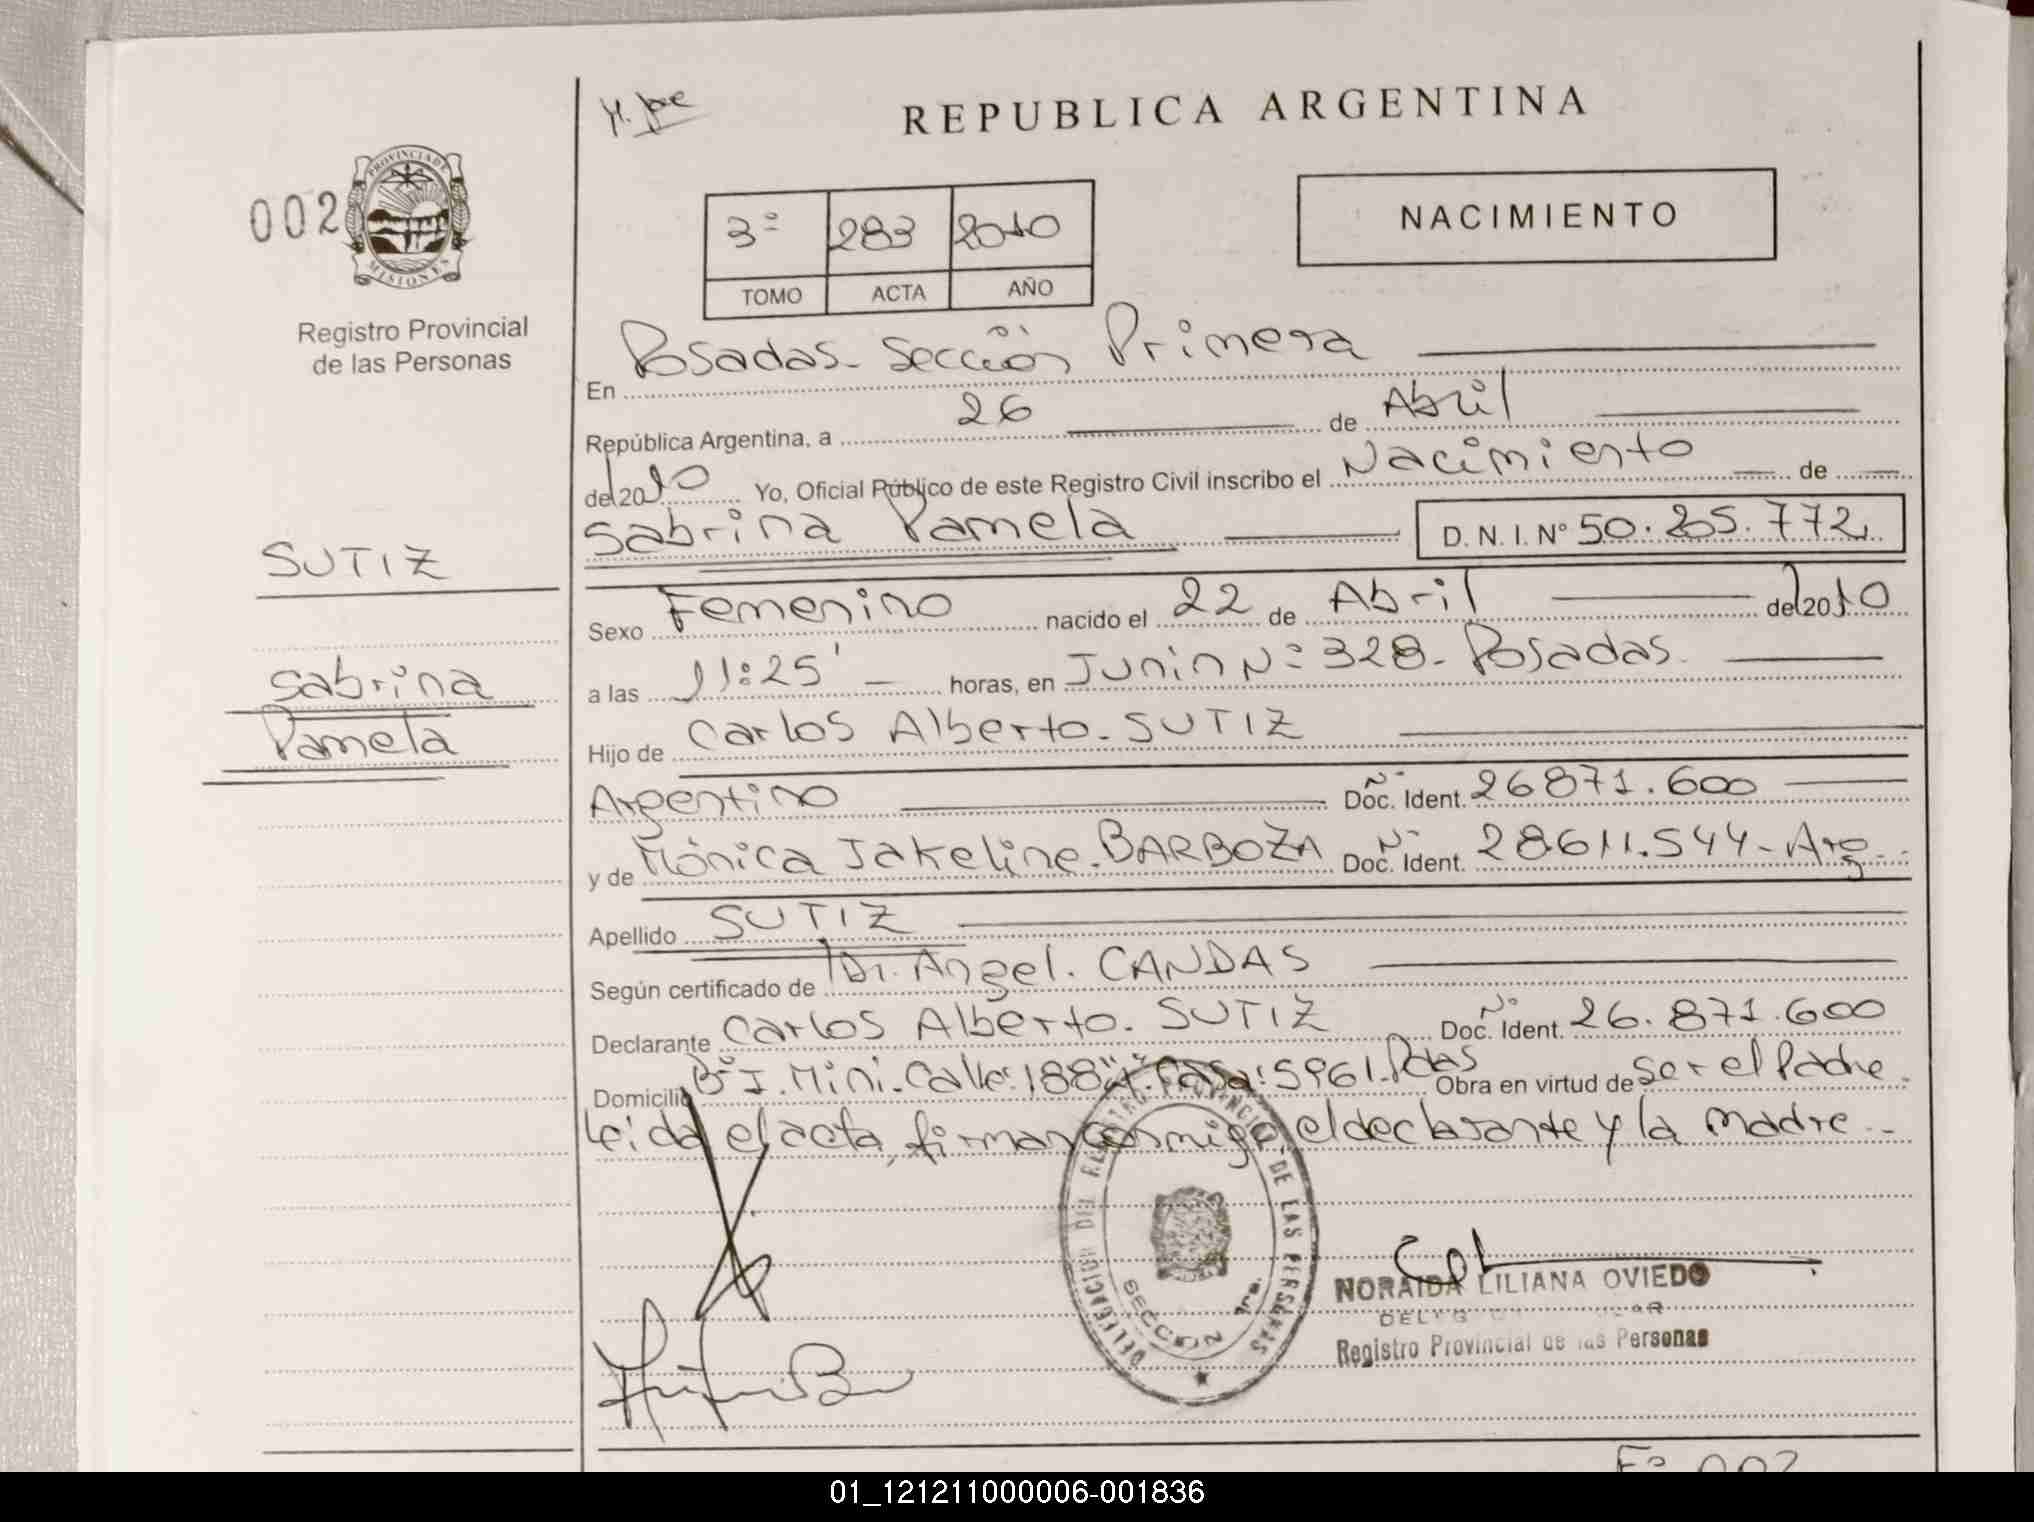 REPUBLICA ARGENTINA
002
PROVINCIA DE
MISIONES
Registro Provincial
de las Personas
3º 283 2010
TOMO ACTA AÑO
NACIMIENTO
En Posadas - Sección Primera
República Argentina, a 26 de Abril
del 2010 Yo, Oficial Público de este Registro Civil inscribo el Nacimiento de
Sabrina Pamela D. N. I. Nº 50.205.772
SUTIZ
Sabrina
Pamela
Sexo Femenino nacido el 22 de Abril del 2010
a las 11:25' horas, en Junin Nº 328 - Posadas.
Hijo de Carlos Alberto - SUTIZ
Argentino Nº Doc. Ident. 26871.600
y de Mónica Jakeline - BARBOZA Nº Doc. Ident. 28.611.544 - Arg.
Apellido SUTIZ
Según certificado de Dr. Angel. CANDAS
Declarante Carlos Alberto. SUTIZ Nº Doc. Ident. 26.871.600
Domicilio Bº I. Mini - Calle: 188 Casa: 5961 - Pdas Obra en virtud de ser el Padre.
Leida el acta, firman conmigo el declarante y la madre -
DELEGACION DEL REGISTRO PROVINCIAL DE LAS PERSONAS
SECCION 1ra.
NORAIDA LILIANA OVIEDO
Registro Provincial de las Personas
Fº 002
01_121211000006-001836